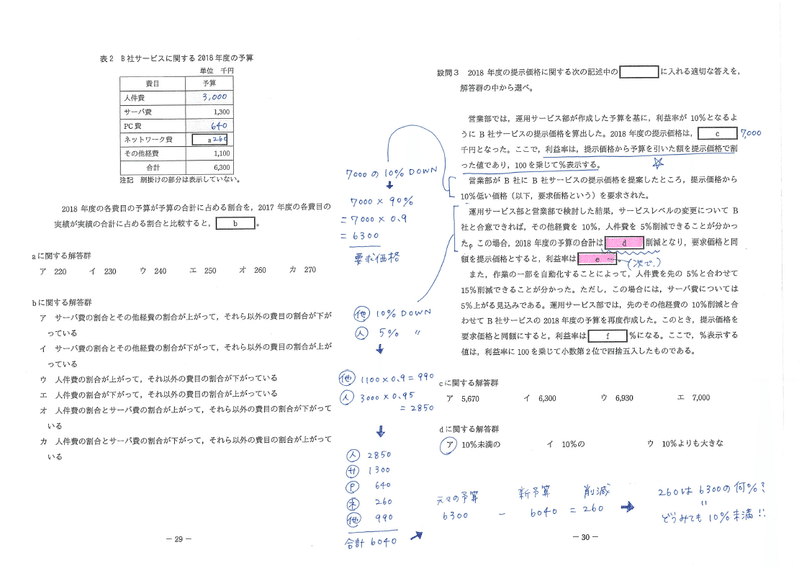 表2 B社サービスに関する2018年度の予算
単位 千円
費目 予算
人件費 3,000
サーバ費 1,300
PC費 640
ネットワーク費 a 260
その他経費 1,100
合計 6,300
注記 網掛けの部分は表示していない。
2018年度の各費目の予算が予算の合計に占める割合を,2017年度の各費目の
実績が実績の合計に占める割合と比較すると, b 。
aに関する解答群
ア 220 イ 230 ウ 240 エ 250 オ 260 カ 270
bに関する解答群
ア サーバ費の割合とその他経費の割合が上がって,それら以外の費目の割合が下が
っている
イ サーバ費の割合とその他経費の割合が下がって,それら以外の費目の割合が上が
っている
ウ 人件費の割合が上がって,それ以外の費目の割合が下がっている
エ 人件費の割合が下がって,それ以外の費目の割合が上がっている
オ 人件費の割合とサーバ費の割合が上がって,それら以外の費目の割合が下がって
いる
カ 人件費の割合とサーバ費の割合が下がって,それら以外の費目の割合が上がって
いる
- 29 -
7000の10%DOWN
7000×90%
=7000×0.9
=6300
要求価格
他 10%DOWN
人 5% 〃
他 1100×0.9=990
人 3000×0.95
=2850
人 2850
サ 1300
P 640
ネ 260
他 990
合計 6040
設問3 2018年度の提示価格に関する次の記述中の に入れる適切な答えを,
解答群の中から選べ。
営業部では,運用サービス部が作成した予算を基に,利益率が10%となるよ
うにB社サービスの提示価格を算出した。2018年度の提示価格は, c 7,000
千円となった。ここで,利益率は,提示価格から予算を引いた額を提示価格で割
った値であり,100を乗じて%表示する。
営業部がB社にB社サービスの提示価格を提案したところ,提示価格から
10%低い価格(以下,要求価格という)を要求された。
運用サービス部と営業部で検討した結果,サービスレベルの変更についてB
社と合意できれば,その他経費を10%,人件費を5%削減できることが分かっ
た。この場合,2018年度の予算の合計は d 削減となり,要求価格と同
額を提示価格とすると,利益率は e (次で)
また,作業の一部を自動化することによって,人件費を先の5%と合わせて
15%削減できることが分かった。ただし,この場合には,サーバ費については
5%上がる見込みである。運用サービス部では,先のその他経費の10%削減と合
わせてB社サービスの2018年度の予算を再度作成した。このとき,提示価格を
要求価格と同額にすると,利益率は f %になる。ここで,%表示する
値は,利益率に100を乗じて小数第2位で四捨五入したものである。
cに関する解答群
ア 5,670 イ 6,300 ウ 6,930 エ 7,000
dに関する解答群
ア 10%未満の イ 10%の ウ 10%よりも大きな
元々の予算 新予算 削減
6300 - 6040 = 260
260は6300の何%?
〃
どうみても10%未満!!
- 30 -